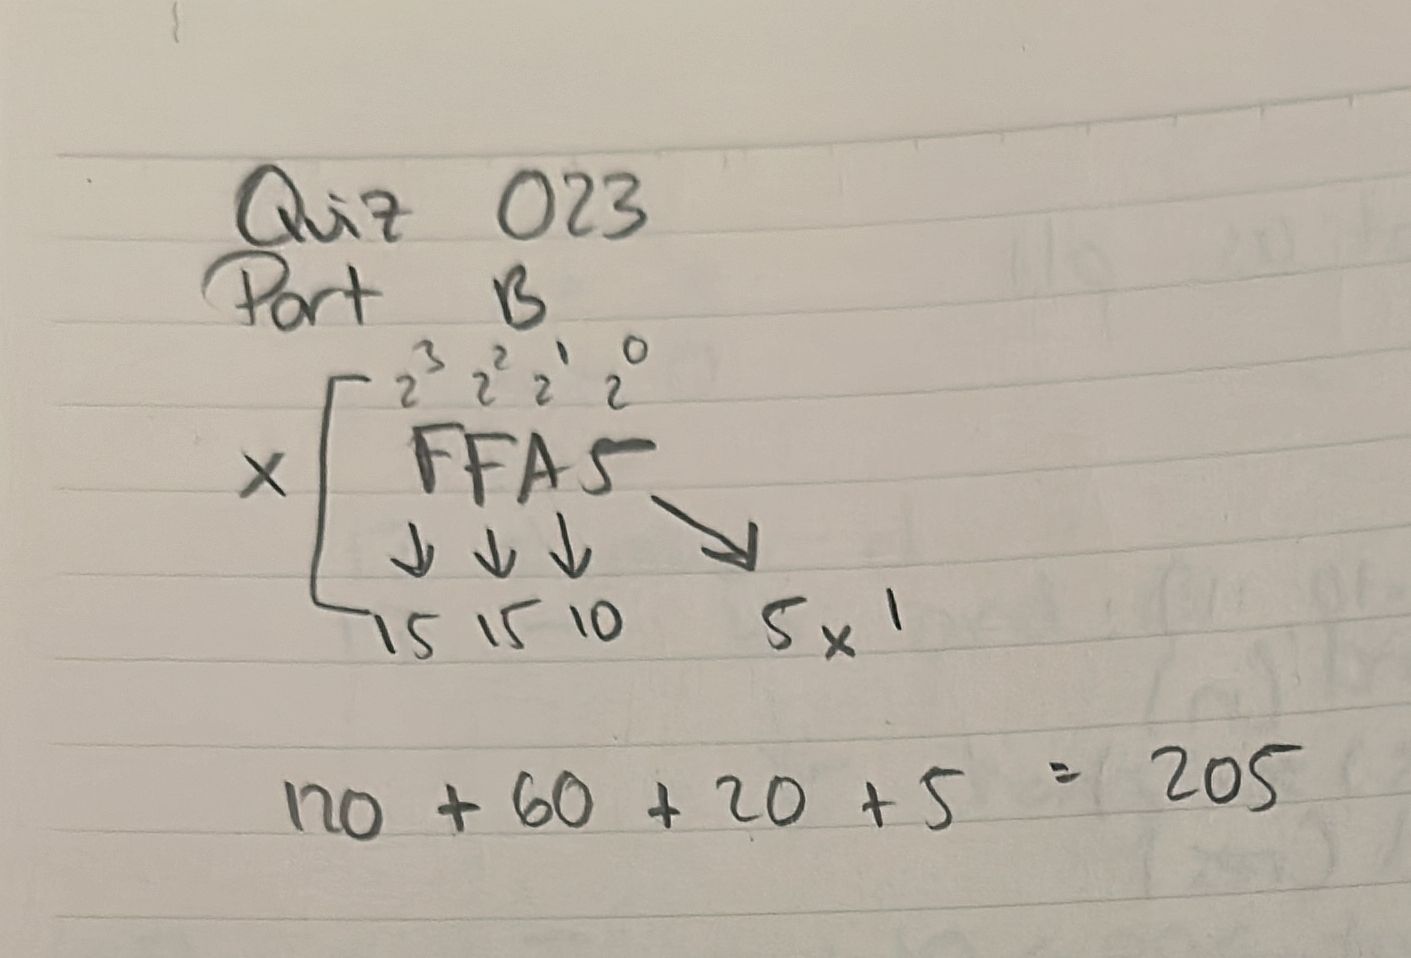 Quiz 023
Part B
2³ 2² 2¹ 2⁰
x FFA5
↓ ↓ ↓ ↘
15 15 10 5 x 1
120 + 60 + 20 + 5 = 205